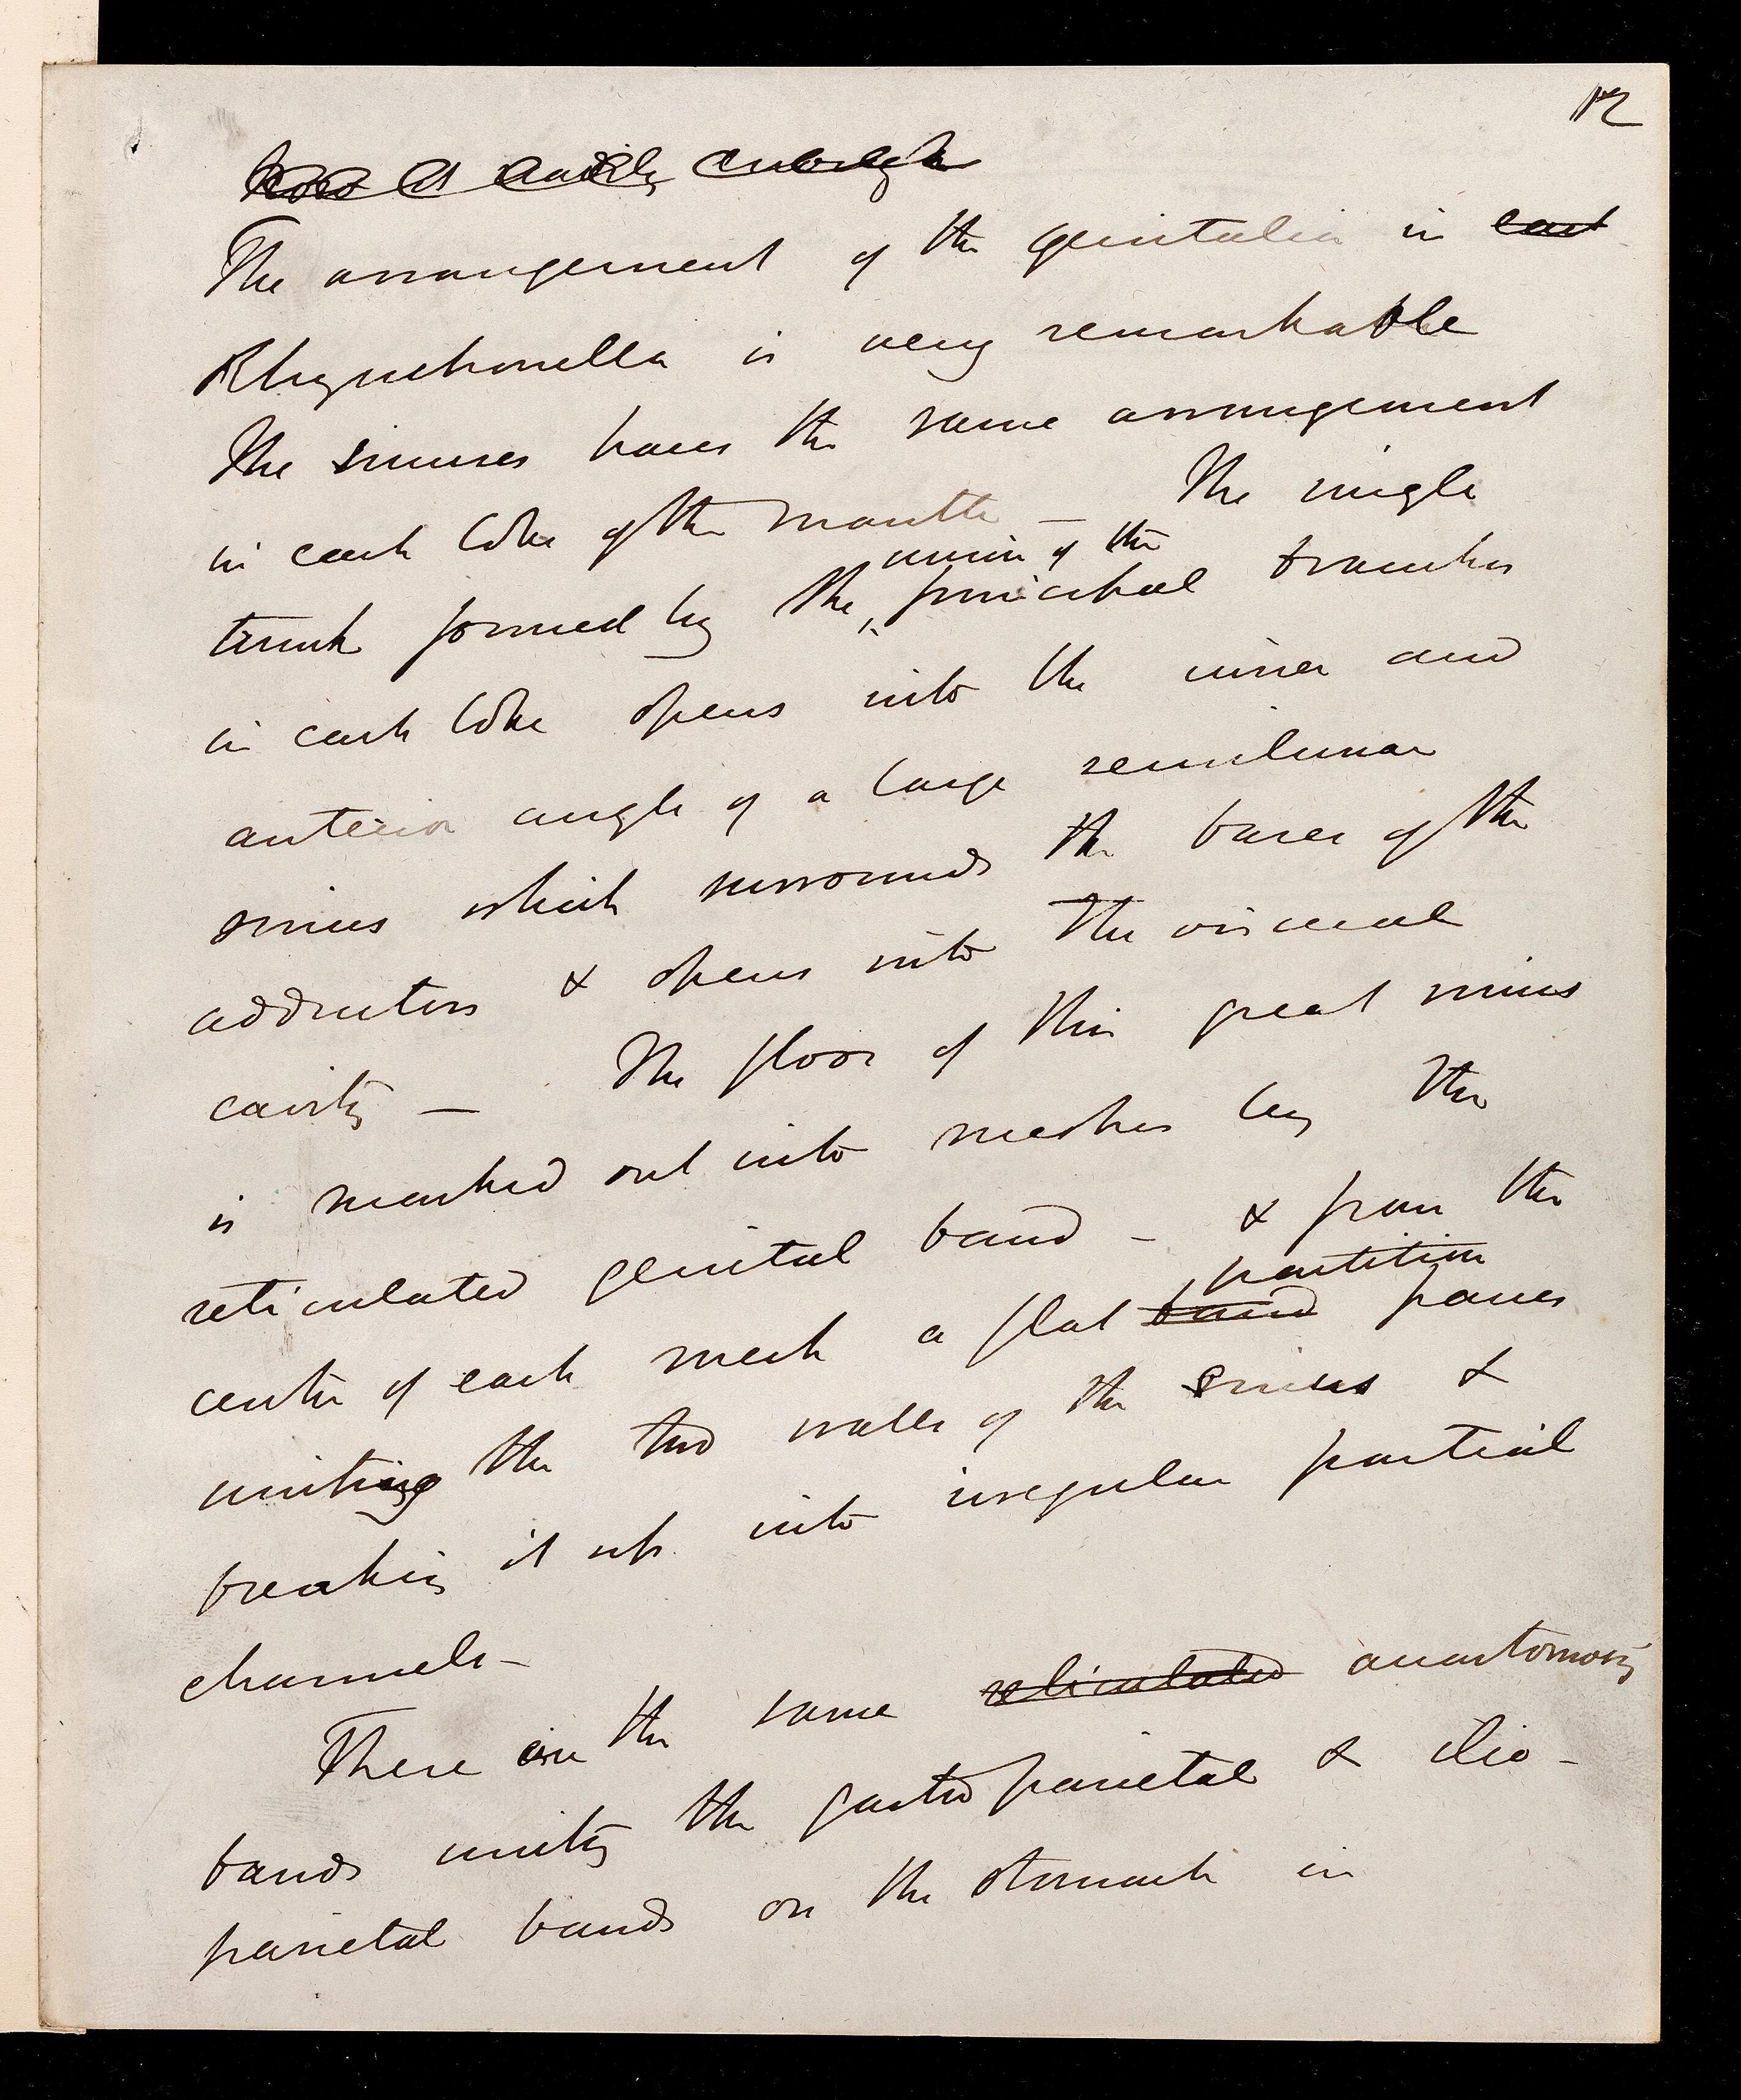 12
The arrangement of the genitalia in
Rhynchonella is very remarkable
The sinuses have the same arrangement
in each lobe of the mantle — The single
union of the
trunk formed by the principal branches
in each lobe opens into the inner and
anterior angle of a large semilunar
sinus which surrounds the bases of the
adductors & opens into the visceral
cavity — The floor of this great sinus
is marked out into meshes by the
reticulated genital band — & from the
partition
centre of each mesh a flat band passes
uniting the two walls of the sinus &
breaking it up into irregular partial
channels —
There are the same reticulated anastomosing
bands uniting the gastro parietal & ilio-
parietal bands on the stomach in